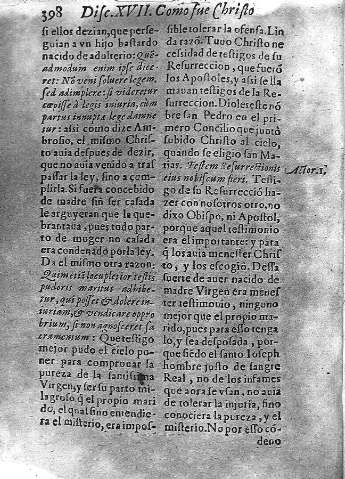 398 Disc. XVII. Como fue Christo
si ellos dezian, que perse-
guian a vn hijo bastardo
nacido de adulterio: Que-
admodum enim ipse dice-
ret: Nõ veni soluere legem,
sed adimplere: si videretur
cœpisse à legis iniuria, cum
partus innuptæ lege damne-
tur: assi como dize Am-
brosio, el mismo Christo
auia despues de dezir,
que no auia venido a tras
passar la ley, sino a cum-
plirla. Si fuera concebido
de madre sin ser casada
le arguyeran que la que-
brantaua, pues todo par-
to de muger no casada
era condenado por la ley.
Da el mismo otra razon:
Quin etiã locupletior testis
pudoris maritus adhibe-
tur, qui posset & dolere in-
iuriam, & vendicare oppro
brium, si non agnosceret sa
cramentum: Que testigo
mejor pudo el cielo po-
ner para comprouar la
pureza de la santissima
Virgen, y ser su parto mi-
lagroso q̃ el proprio mari
do, el qual sino entendie-
ra el misterio, era impos-
sible tolerar la ofensa. Lin
da razõ. Tuuo Christo ne
cessidad de testigos de su
Resurreccion, que fuerõ
los Apostoles, y assi se lla
mauan testigos de la Re-
surreccion. Dioles este nõ
bre san Pedro en el pri-
mero Concilio que juntò
subido Christo al cielo,
quando se eligio san Ma-
tias. Testem Resurrectionis
eius nobiscum fieri. Testi-
go de su Resurreccion ha
zer con nosotros otro, no
dixo Obispo, ni Apostol,
porque aquel testimonio
era el importante: y para
q̃ los auia menester Chris
to, y los escogiò. Dessa
suerte de auer nacido de
madre Virgen era menes
ter testimonio, ninguno
mejor que el proprio ma-
rido, pues para esso tenga
lo, y sea desposada, por-
que siẽdo el santo Ioseph
hombre justo de sangre
Real, no de los infames
que aora se vsan, no auia
de tolerar la injuria, sino
conociera la pureza, y el
misterio. No por esso cõ-
deno
Actor. 1.